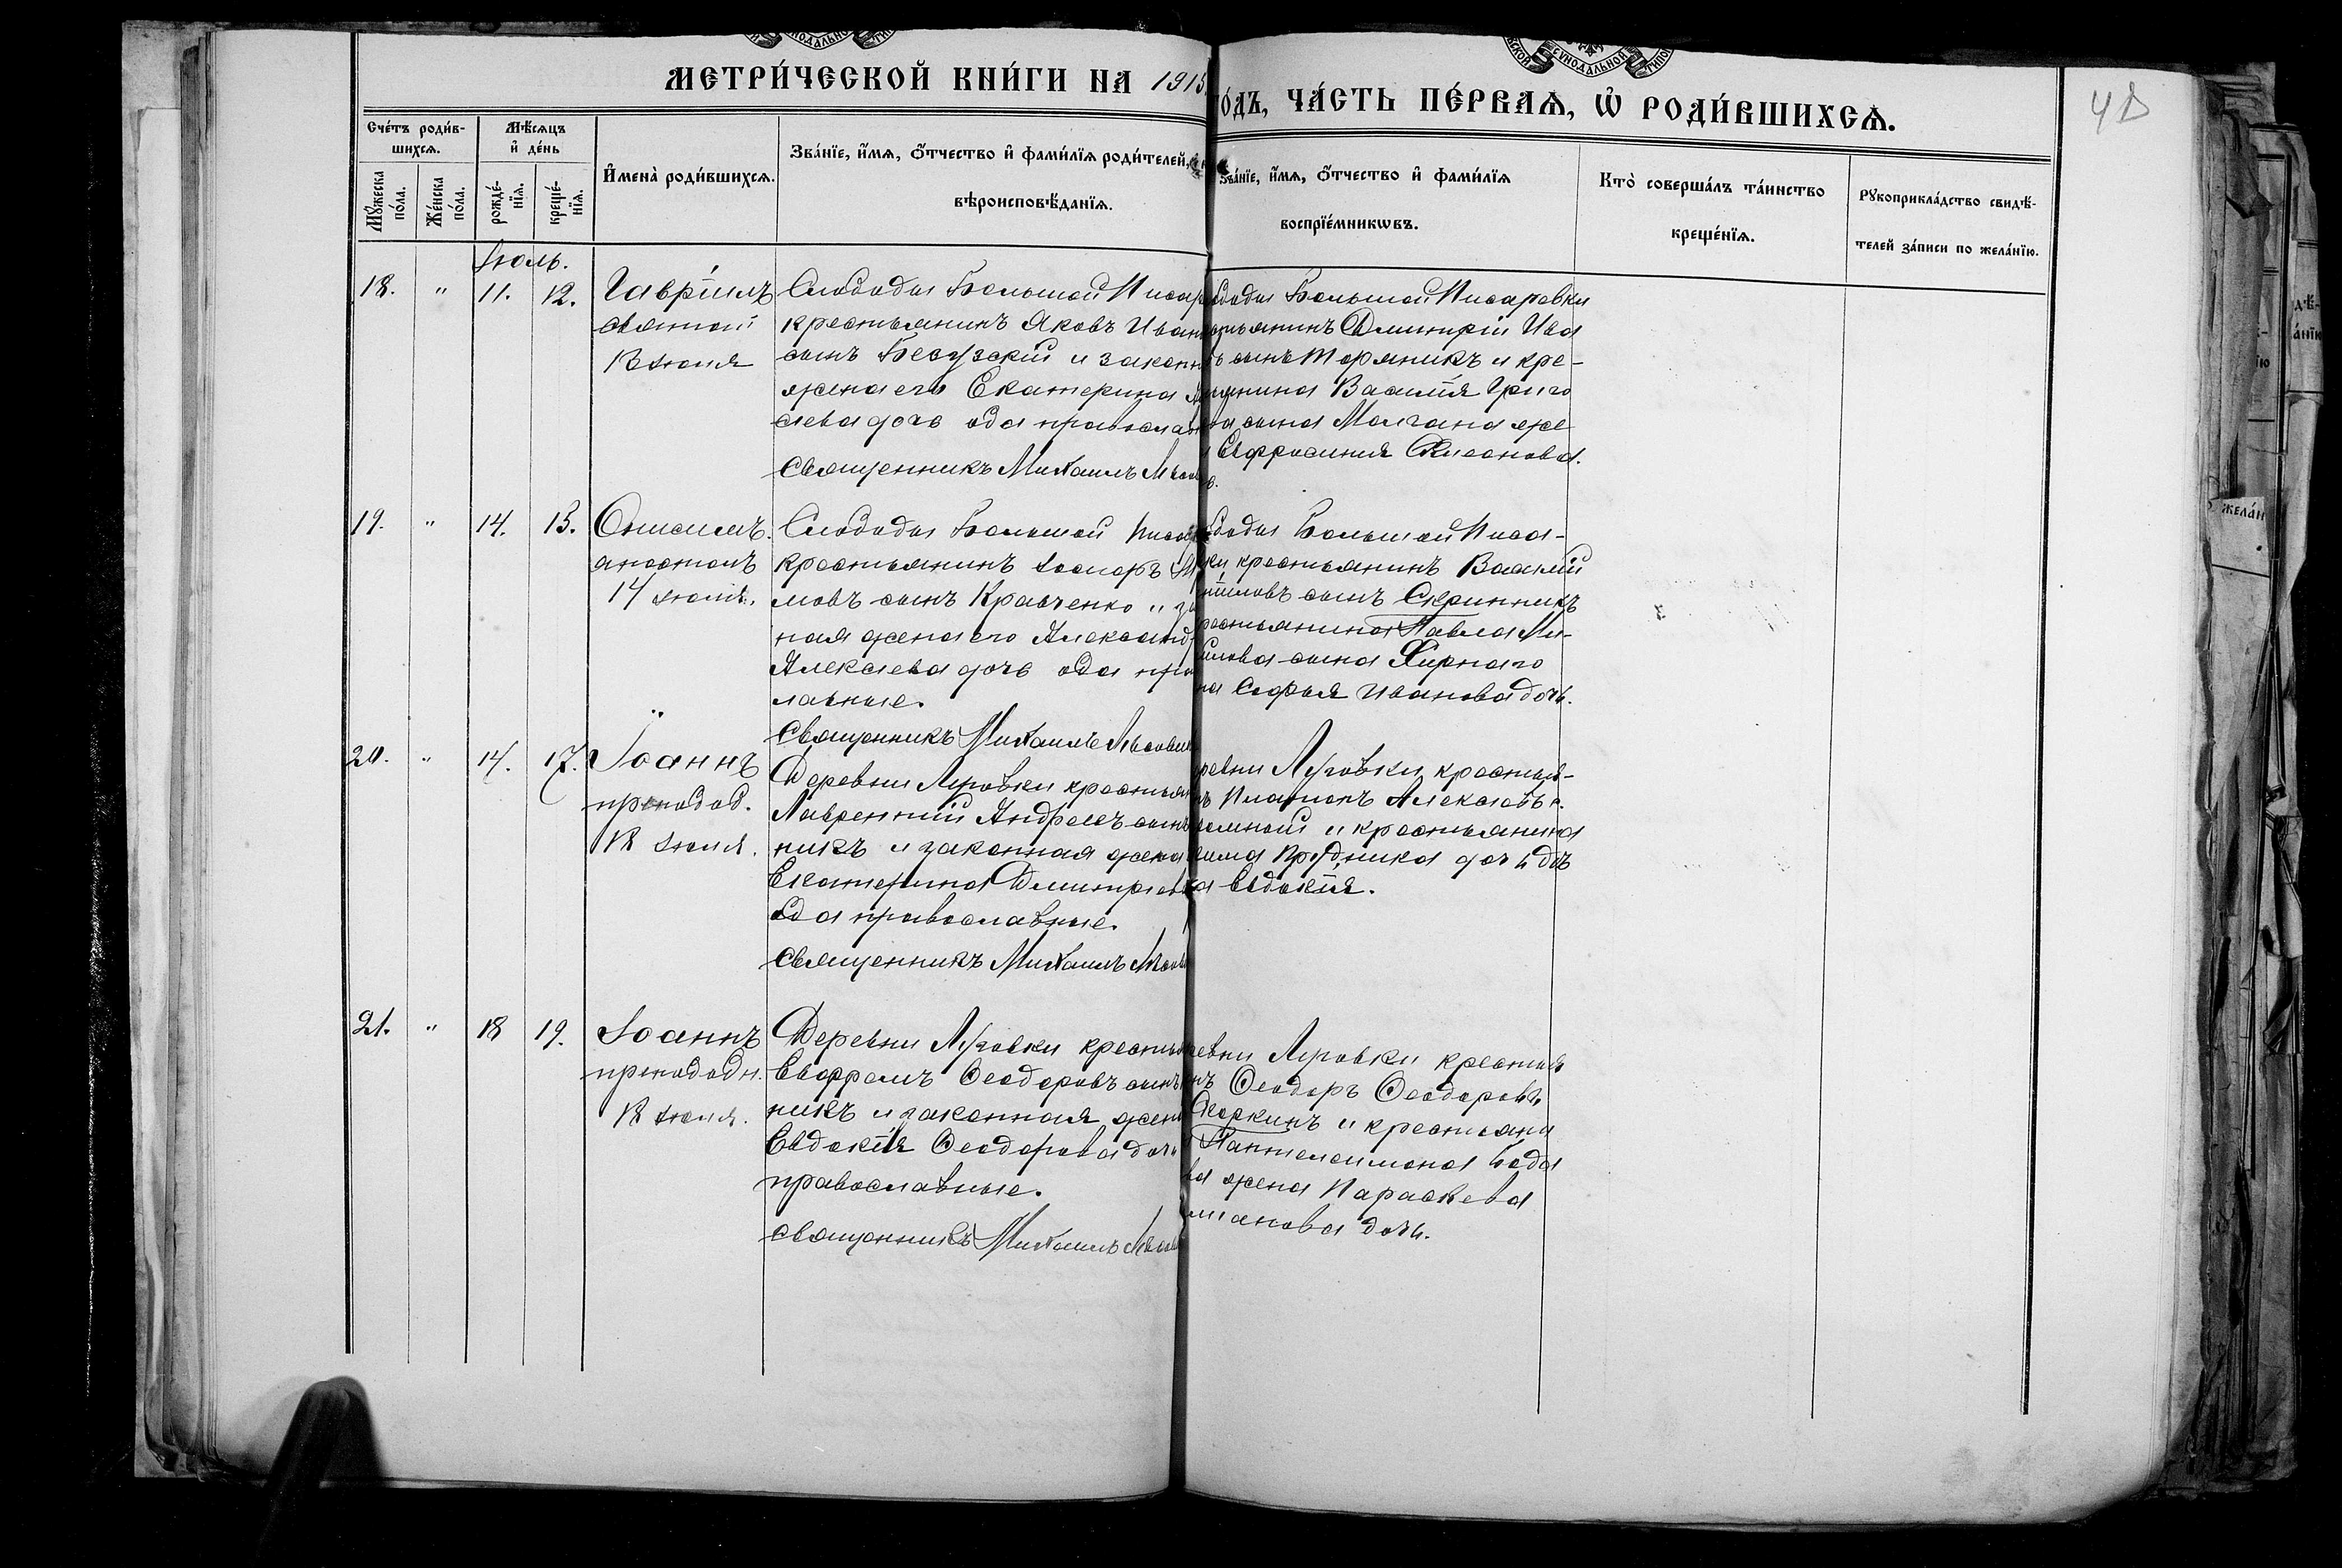 МЕТРИ́ЧЕСКОЙ КНИ́ГИ НА 1915
ГО́ДЪ, ЧА́СТЬ ПЕ́РВАѦ, Ѡ РОДИ́ВШИХСѦ.
Сче́тъ роди́в-
шихсѧ.
Мѣ́сѧцъ
и де́нь
Мꙋ́жеска
по́ла.
Же́нска
по́ла.
рожде́-
нїѧ.
креще́-
нїѧ.
И҆мена̀ роди́вшихсѧ.
Зва́нїе, и҆́мѧ, ѻ҆́тчество и҆ фами́лїѧ роди́телей,
вѣроисповѣ́данїѧ.
Зва́нїе, и҆́мѧ, ѻ҆́тчество и҆ фами́лїѧ
воспрїе́мникѡвъ.
Кто̀ соверша́лъ та́инство
креще́нїѧ.
Рꙋкоприкла́дство свидѣ́-
телей за́писи по жела́нїю.
Іюль.
18. " 11. 12.
Гавріилъ
святой
13 іюля
Слободы Большой Писар
крестьянинъ Яковъ Иван
сынъ и законн
жена его Екатерина
сіева дочь оба православ
Священникъ Михаилъ
боды Большой Писаревки
стьянинъ Димитрій Ива
сынъ и кре-
янина Василія Григо
ва сына жe
Евфросинія
19. " 14. 15.
Онисимъ
апостолъ
14 іюля.
Слободы Большой Писа
крестьянинъ
мовъ сынъ Кравченко и за
ная жена его Александ
Алексіева дочь оба пра
лавные.
Священникъ Михаилъ
боды Большой Писа-
ки крестьянинъ Василій
сынъ Скринникъ
рестьянина Павла Ми-
йлова сына
на Софья Иванова дочь.
20. " 14. 17.
Іоаннъ
преподоб.
18 іюля.
Деревни Луговки крестьян
Лаврентій Андреевъ сынъ
никъ и законная жена
Екатерина Димитріев
оба православные.
Священникъ Михаилъ
ревни Луговки крестья-
нъ Платонъ Алексіевъ
и крестьянина
дочь дѣ
а Евдокія.
21. " 18 19.
Іоаннъ
преподобн.
18 іюля.
Деревни Луговки крестья
Евфремъ Ѳеодоровъ сынъ
никъ и законная жен
Евдокія Ѳеодорова дочь
православные.
Священникъ Михаилъ
ревни Луговки крестья
нъ Ѳеодоръ Ѳеодоровъ
и крестьяни
Пантелеимона
ва жена Параскева
дочь.